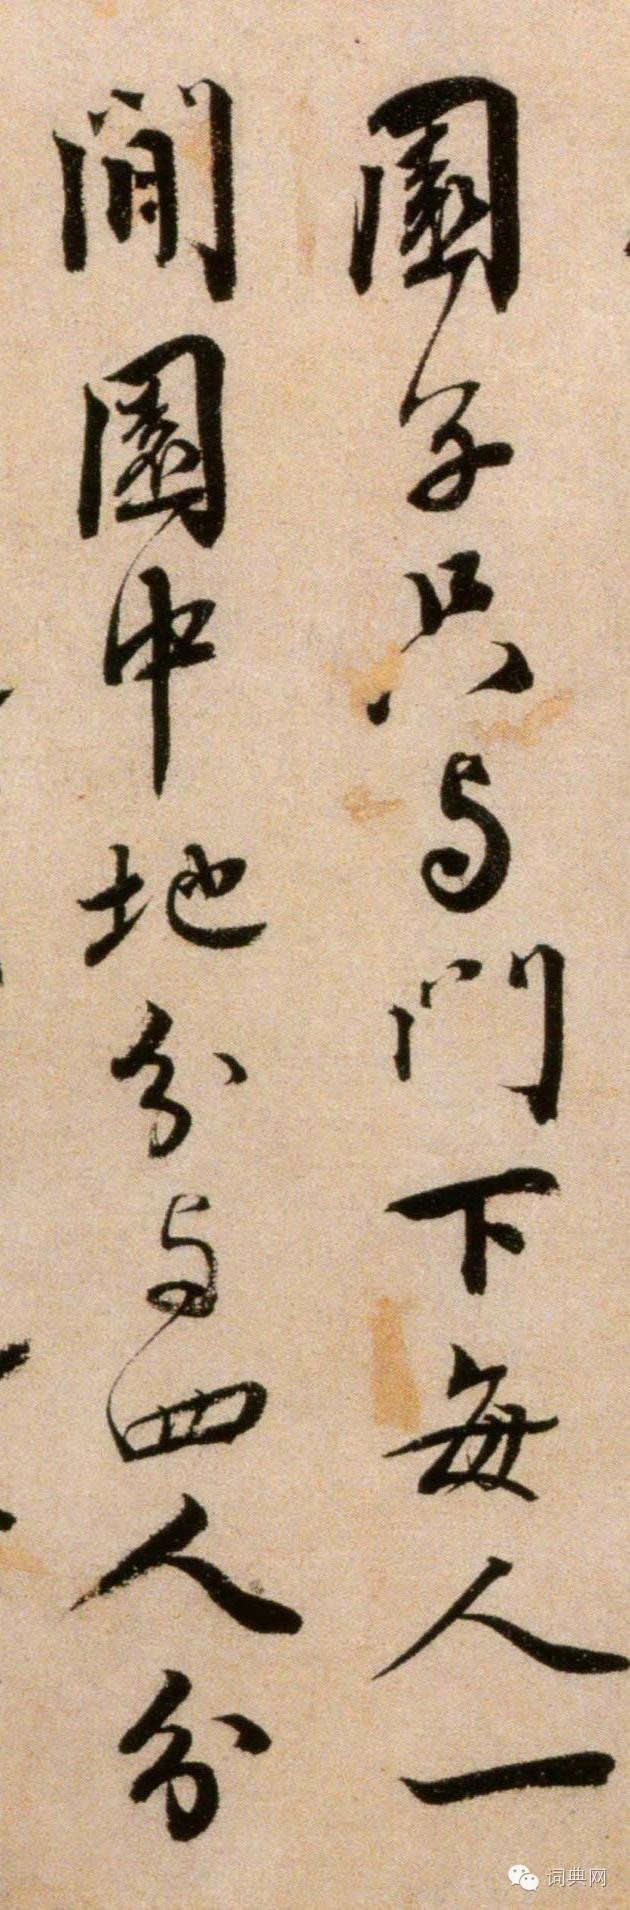 園子只与門下每人一
間園中地分与四人分
词典网